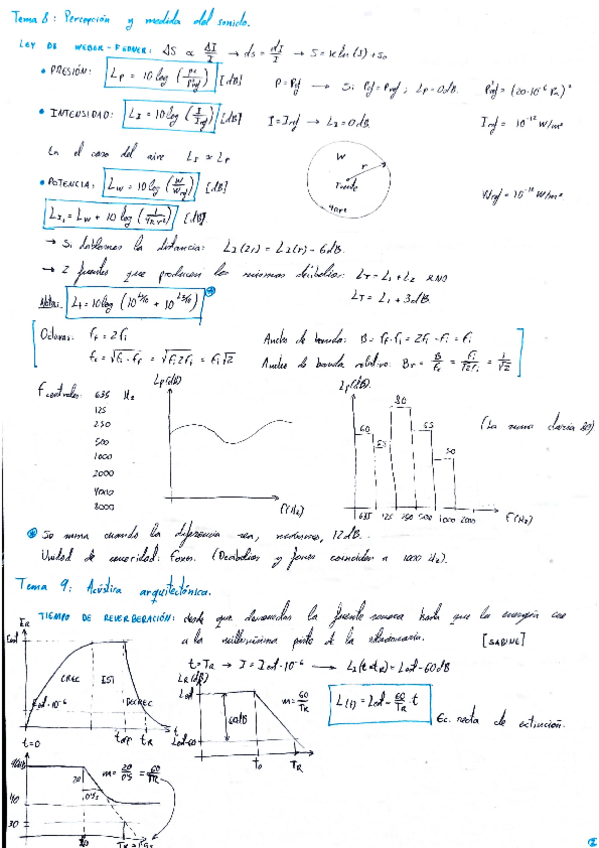 Tema 8: Percepción y medida del sonido.
LEY DE WEBER-FECHNER: ΔS ∝ ΔI/I → dS = dI/I → S = K ln(I) + S₀
• PRESIÓN: Lp = 10 log (p²/p²ref) [dB] P = Pref → Si Pef = Pref, Lp = 0 dB. P²ref = (20·10⁻⁶ Pa)²
• INTENSIDAD: L_I = 10 log (I/Iref) [dB] I = Iref → L_I = 0 dB. Iref = 10⁻¹² W/m²
En el caso del aire L_I ≈ Lp
W
r
Fuente
4πr²
• POTENCIA: Lw = 10 log (W/Wref) [dB] Wref = 10⁻¹² W/m²
L_I = Lw + 10 log (1/4πr²) [dB]
→ Si doblamos la distancia: L_I(2r) = L_I(r) - 6 dB.
→ 2 fuentes que producen los mismos decibelios: L_T = L₁ + L₂ NO
L_T = L₁ + 3 dB.
Notas: L_T = 10 log (10^(L1/10) + 10^(L2/10))
Octavas: f_f = 2 f_i Ancho de banda: B = f_f - f_i = 2f_i - f_i = f_i
f_c = √(f_i · f_f) = √(f_i 2f_i) = f_i √2 Ancho de banda relativo: Br = B/f_c = f_i/(√2 f_i) = 1/√2
F centrales: 63'5 Hz
125
250
500
1000
2000
4000
8000
Lp (dB)
f (Hz)
Lp (dB)
60
55
80
65
50
63'5 125 250 500 1000 2000 F (Hz)
(La suma daría 80)
Se suma cuando la diferencia sea, máximo, 12 dB.
Unidad de sonoridad: Fonos. (Decibelios y fonos coinciden a 1000 Hz).
Tema 9: Acústica arquitectónica.
TIEMPO DE REVERBERACIÓN: desde que la fuente sonora hasta que la energía cae
a la millonésima parte de la estacionaria. [SABINE]
t = T_R → I = I_est · 10⁻⁶ → L_I(t = t_R) = L_est - 60 dB
CREC EST DECREC
t = 0 t_off t_R t
L_R (dB)
L_est
60 dB
L_est - 60
m = 60/T_R
t₀ T_R
L(t) = L_est - 60/T_R · t
Ec. recta de extinción.
20
m = 20/0'5 = 60/T_R
40
30